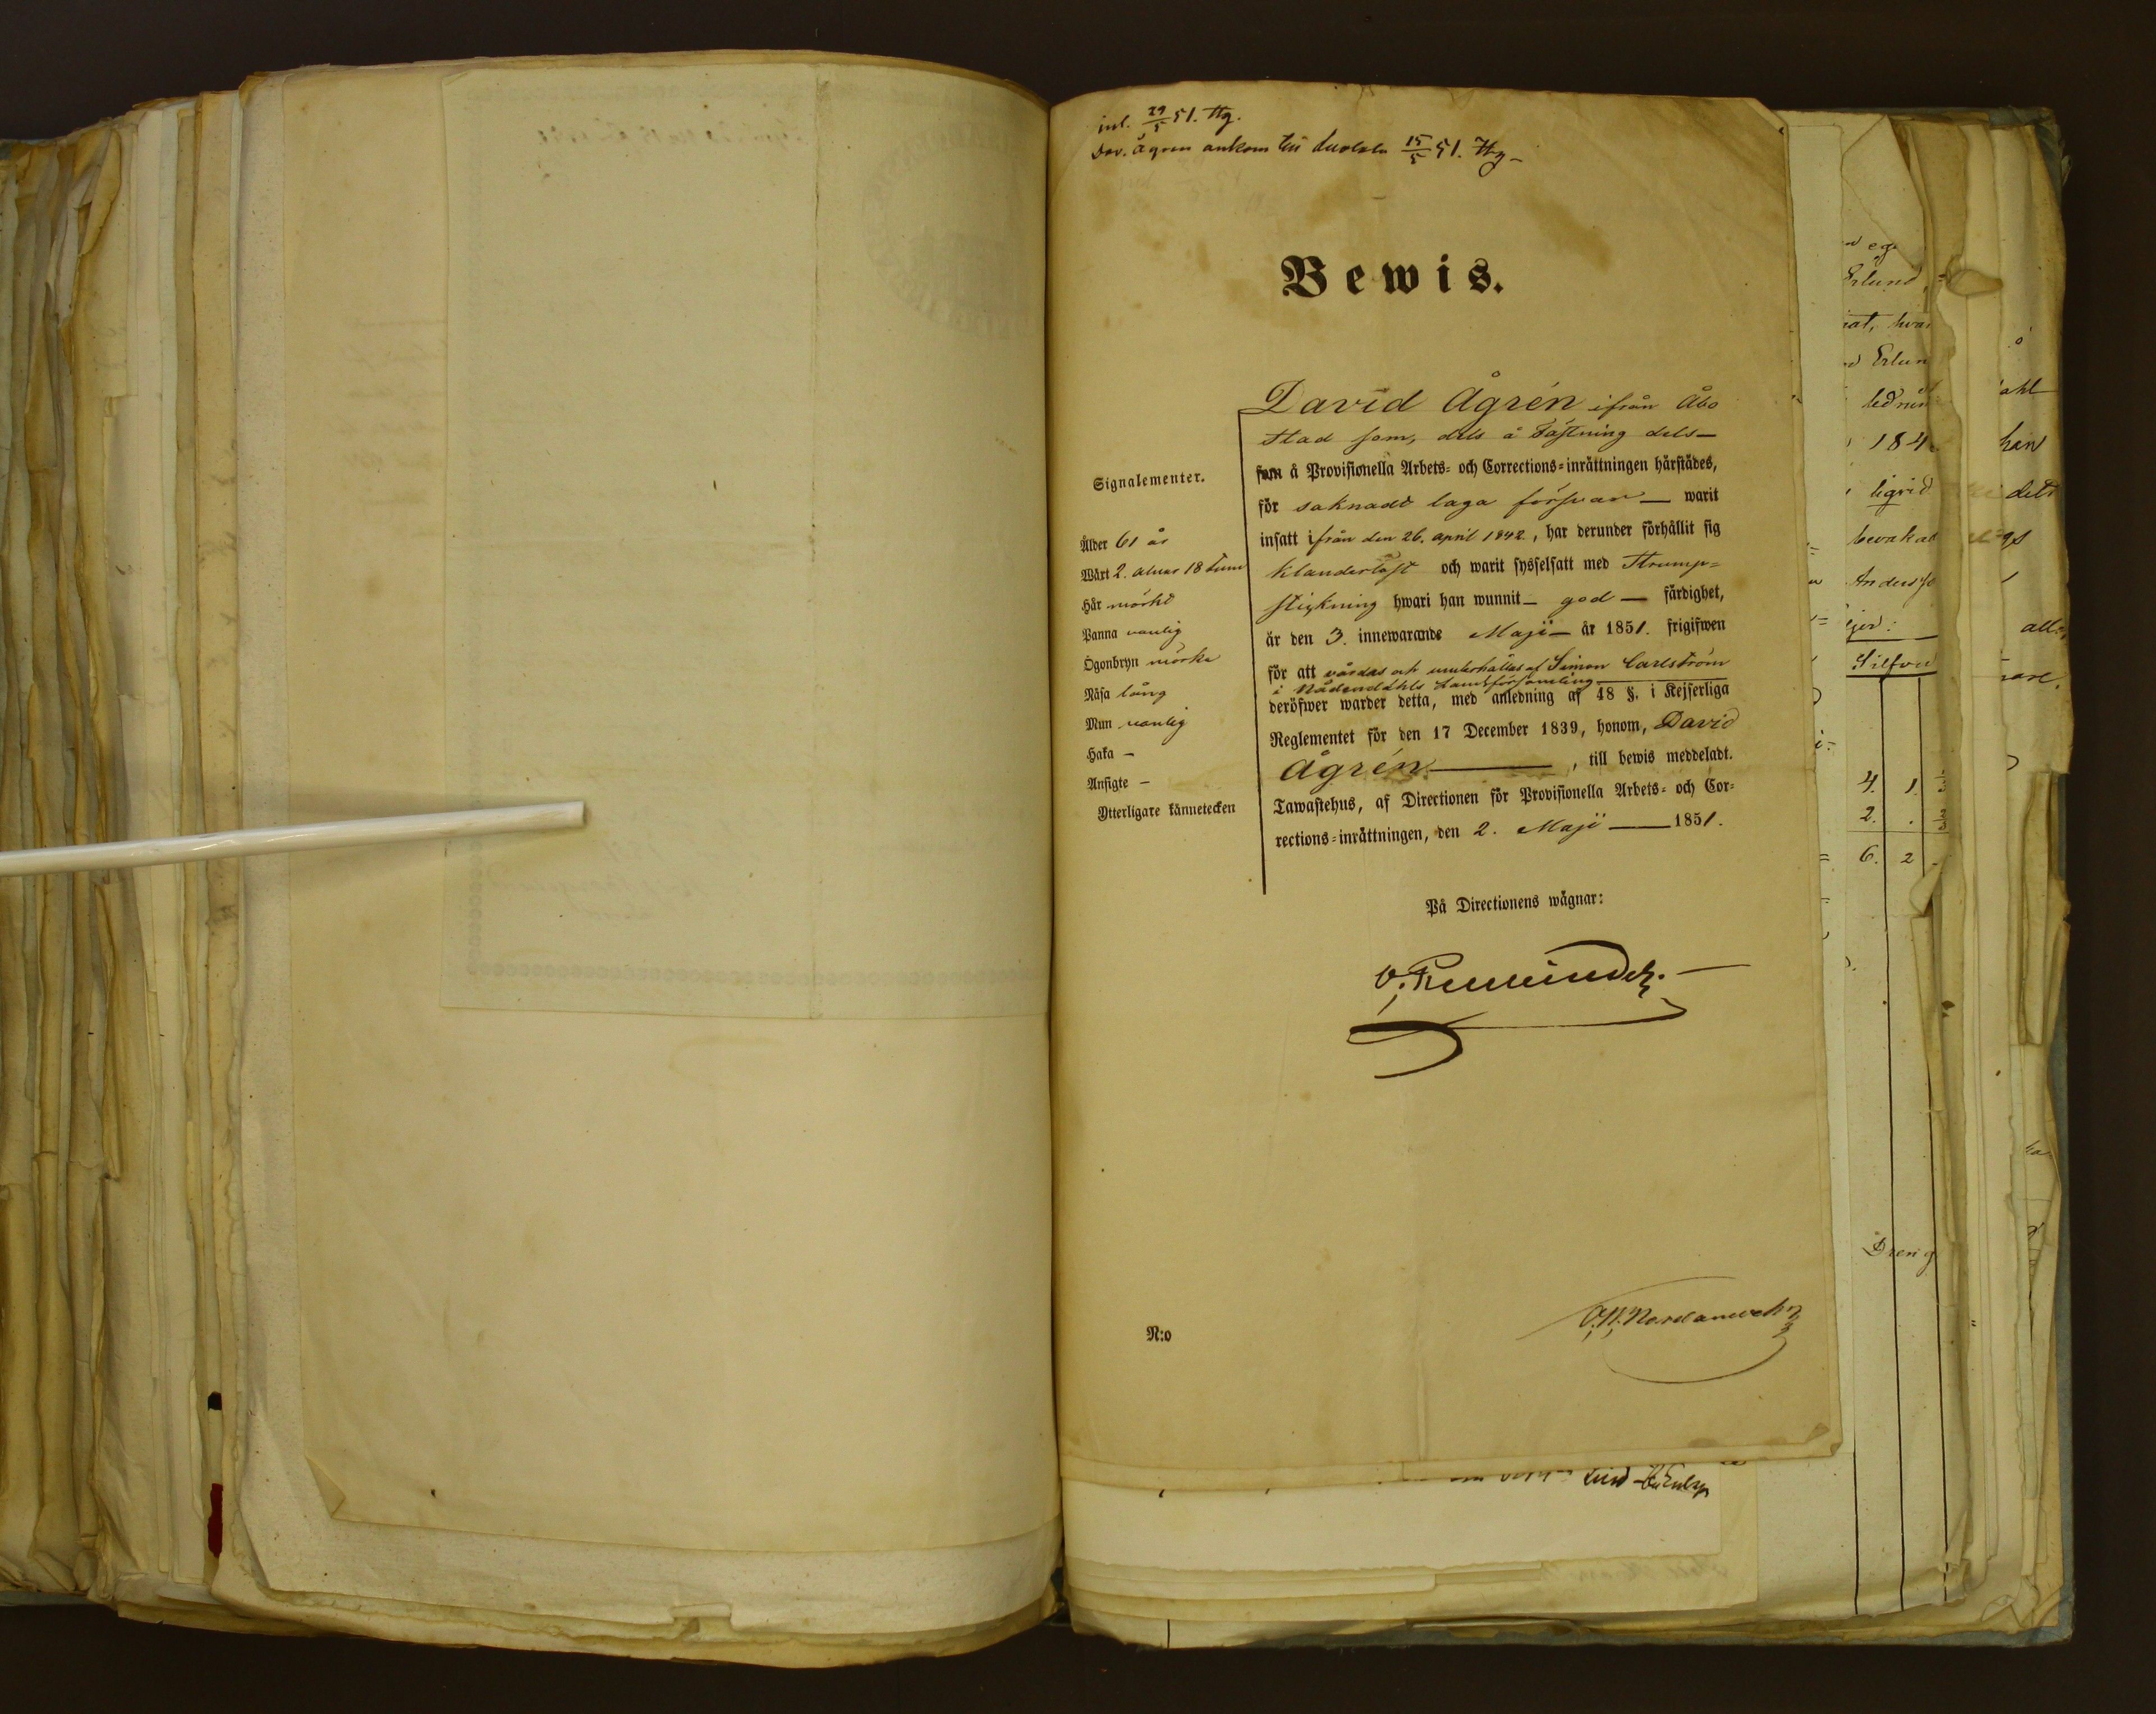 inl. 29/5 51. Hg.
Dav. Ågren ankom till 15/5 51. Hg –
Bewis.
David Ågrén ifrån Åbo
Stad som, dels å Fästning dels –
som å Provisionella Arbets- och Corrections-inrättningen härstädes,
för saknadt laga försvar — warit
insatt ifrån den 26. april 1842, har derunder förhållit sig
klanderlöst och warit sysselsatt med Strump-
stickning hwari han wunnit – god — färdighet,
är den 3. innewarande Maji – år 1851. frigifwen
för att vårdas och underhållas af Simon Carlström
i Nådendahls Landsförsamling
deröfwer warder detta, med anledning af 48 §. i Kejserliga
Reglementet för den 17 December 1839, honom, David
Ågrén — , till bewis meddeladt.
Tawastehus, af Directionen för Provisionella Arbets- och Cor-
rections-inrättningen, den 2. Maji — 1851.
Signalementer.
Ålder 61 år
Wäxt 2. alnar 18 tum
Hår mörkt
Panna vanlig
Ögonbryn mörka
Näsa lång
Mun vanlig
Haka –
Ansigte –
Ytterligare kännetecken
På Directionens wägnar:
N:o
Erlund
hvar
Erlun
184
Silfver
4. 1.
2. .
6. 2
Dreng
ahl
han
dets